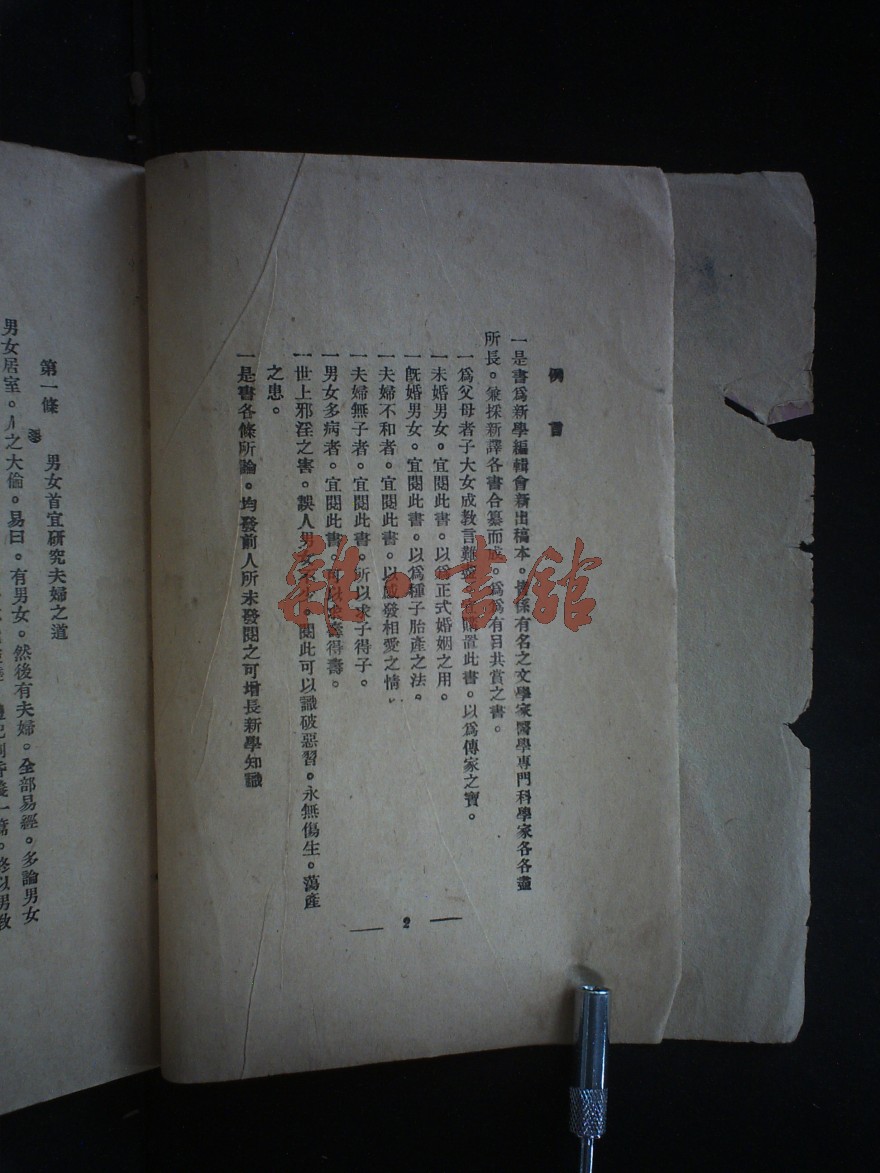 例言
一是書爲新學編輯會新出稿本。皆係有名之文學家醫學專門科學家各各盡
所長。兼採新譯各書合纂而成。爲爲有目共賞之書。
一爲父母者子大女成教言難盡。宜購置此書。以爲傳家之寶。
一未婚男女。宜閱此書。以爲正式婚姻之用。
一旣婚男女。宜閱此書。以爲種子胎產之法。
一夫婦不和者。宜閱此書。以感發相愛之情。
一夫婦無子者。宜閱此書。所以求子得子。
一男女多病者。宜閱此書。可以求壽得壽。
一世上邪淫之害。誤人男女不少。閱此可以識破惡習。永無傷生。蕩產
之患。
一是書各條所論。均發前人所未發閱之可增長新學知識
2
第一條 男女首宜研究夫婦之道
男女居室。人之大倫。易曰。有男女。然後有夫婦。全部易經。多論男女
雜·書館